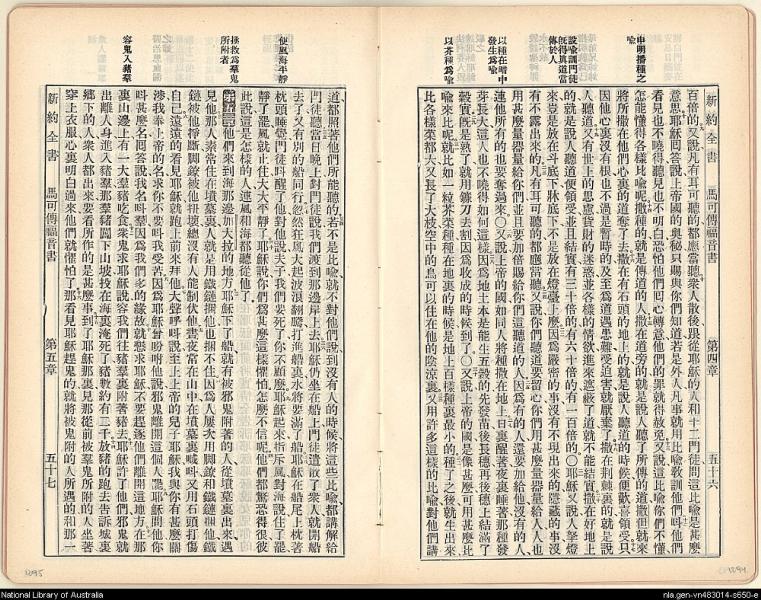 新約全書 馬可傳福音書 第四章 五十六
申明播種之喻
設喻訓門徒旣得眞道當傳於人
以種在暗中發生爲喻
以芥種爲喻
百倍的又說凡有耳可聽的都應當聽衆人散後跟從耶穌的人和十二門徒問這比喻是甚麼
意思耶穌回答說上帝國的奧秘只賜與你們知道若是外人凡事就用比喻敎訓他們呌他們
看見也不曉得聽見也不明白恐怕他們回心轉意他們的罪就得赦免又說這比喻你們不懂
怎能懂得各樣比喻呢撒種的就是傳道的人撒在道旁的就是說人聽了所傳的道撒但就來
將所撒在他們心裏的道奪了去撒在有石頭的地上的就是說人聽道的時候便歡喜領受只
因他心裏沒有根也不過是暫時的及至爲道遇患難受迫害就厭棄了撒在荆棘裏的就是說
人聽道又有世上的思慮貨財的迷惑並各樣的情欲進來遮蔽了道就不能結實撒在好地上
的就是說人聽道便領受並且結實有三十倍的有六十倍的有一百倍的〇耶穌又說人拏燈
來豈是放在斗底下牀底下不是放在燈臺上麼因爲嚴密的事沒有不現出來的隱藏的事沒
有不露出來的凡有耳可聽的都應當聽又說你們聽道要留心你們用甚麼量器量給人人也
用甚麼量器量給你們並且要加倍賜給你們這聽道的人因爲有的人還要加給他沒有的人
連他所有的也要奪過來〇又說上帝的國如同人將種撒在地上日裏醒著夜裏睡著那種發
芽長大這人也不曉得如何這樣因爲地土本是能生五穀的先發苗後長穗再後穗上結滿了
穀實旣是熟了就用鐮刀去割因爲收成的時候到了〇又說上帝的國是像甚麼可用甚麼比
喻來比呢就比如一粒芥菜種種在地裏的時候是地上百樣種裏最小的種了之後就生出來
比各樣菜都大又長了大枝空中的鳥可以住在他的陰涼裏又用許多這樣的比喻對他們講
使風海平靜
拯救爲羣鬼所附者
容鬼入豬羣
道都照著他們所能聽的若不是比喻就不對他們說到沒有人的時候將這些比喻都講解給
門徒聽當日晚上對門徒說我們渡到那邊岸上去耶穌仍坐在船上門徒遣散了衆人就開船
去了又有別的船同行忽然狂風大起波浪翻騰打進船裏水將要滿了船耶穌在船尾上枕著
枕頭睡覺門徒呌醒了他對他說夫子我們要死了你不顧麼耶穌起來斥風對海說住了罷
靜了罷風就止住大大平靜了耶穌說你們爲甚麼這樣懼怕怎麼不信呢他們都驚恐得很彼
此說這是怎樣的人連風和海都聽從他了
第五章他們來到海那邊加大拉的地方耶穌下了船就有被邪鬼附著的人從墳墓裏出來遇
見他那人素常住在墳墓裏人就是用鐵鏈捆他也捆不住因爲人屢次用腳鐐和鐵鏈捆他鐵
鏈被他掙斷腳鐐被他扭壞總沒有人能制伏他晝夜常在山中在墳墓裏喊呌又用石頭打傷
自己遠遠的看見耶穌就跑上前來拜他大聲呼呌說至上上帝的兒子耶穌我與你有甚麼關
涉我奉上帝的名求你不要呌我受苦因爲耶穌曾吩咐他說邪鬼離開這個人罷耶穌問他你
呌甚麼名回答說我名呌羣因爲我們多的緣故就懇求耶穌不要趕逐他們離開這地方在那
裏山邊上有一大羣豬吃食衆鬼求耶穌說容我們往豬羣裏附著豬去耶穌許了他們邪鬼就
出離人身進入豬羣那羣豬闖下山坡投在海裏淹死了豬數約有二千放豬的跑去告訴城裏
鄉下的人衆人都出來要看所作的是甚麼事到了耶穌那裏見那從前被羣鬼所附的人坐著
穿上衣服心裏明白過來他們就懼怕了那看見耶穌趕鬼的就將被鬼附的人所遇的和那一
新約全書 馬可傳福音書 第五章 五十七
National Library of Australia
nla.gen-vn483014-s650-e